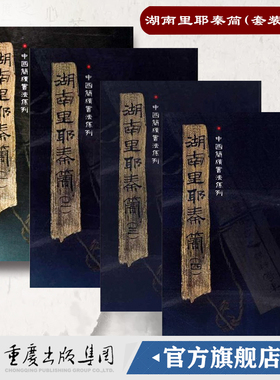 湖南里耶秦简(套装
中国简牍书法系列
湖南里耶秦简(一)
中国简牍书法系列
湖南里耶秦简(二)
中国简牍书法系列
湖南里耶秦简(三)
中国简牍书法系列
湖南里耶秦简(四)
重庆出版集团
CHONGQING PUBLISHING GROUP CO.,LTD.
官方旗舰店